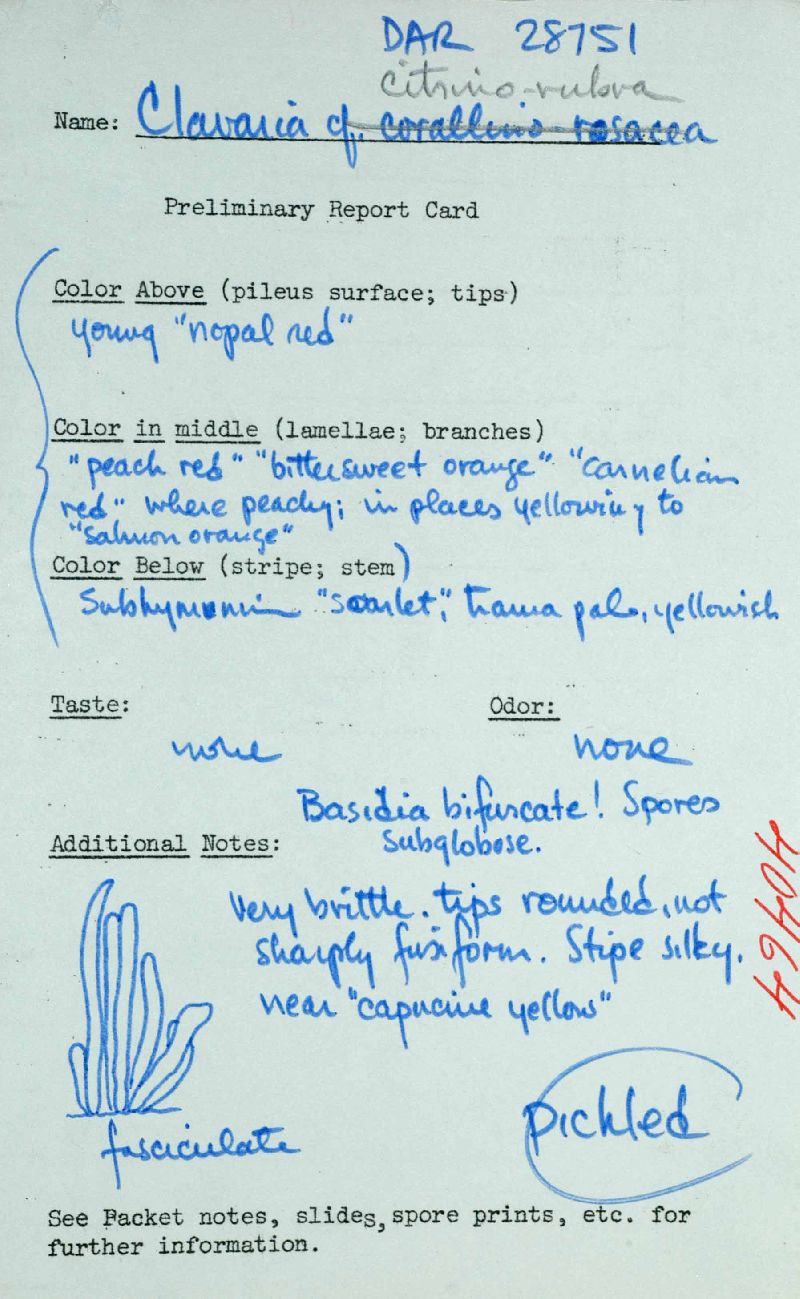 DAR 28751
citrino-rubra
Name: Clavaria cf. corallino-rosacea
Preliminary Report Card
Color Above (pileus surface; tips)
young "nopal red"
Color in middle (lamellae; branches)
"peach red" "bittersweet orange" "Carnelian
red" where peachy; in places yellowing to
"salmon orange"
Color Below (stripe; stem)
Subhymenium "scarlet"; trama pale, yellowish
Taste: Odor:
none none
Basidia bifurcate! Spores
Additional Notes: subglobose.
Very brittle. tips rounded, not
sharply fusiform. Stipe silky,
near "capucine yellow"
40464
fasciculate
pickled
See Packet notes, slides, spore prints, etc. for
further information.